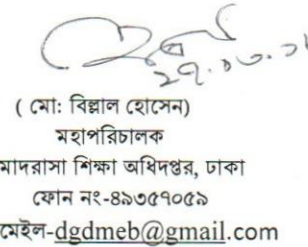 ( মো: বিল্লাল হোসেন)
মহাপরিচালক
মাদরাসা শিক্ষা অধিদপ্তর, ঢাকা
ফোন নং-৪৯৩৫৭০৫৯
মেইল-dgdmeb@gmail.com